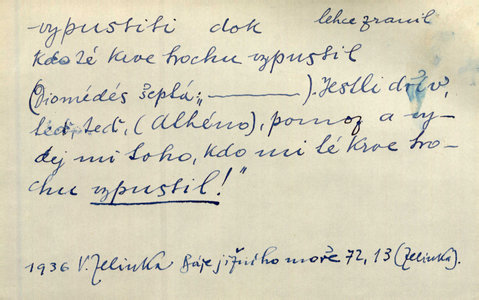 vypustiti dok lehce zranil
kdo té krve trochu vypustil
(Diomédés šeptá: „———).Jestli dřív,
teď, teď, (Athéno), pomoz a vy-
dej mi toho, kdo mi té krve tro-
chu vypustil!"
1936 V. Zelinka Báje jižního moře 72, 13 (Zelinka).